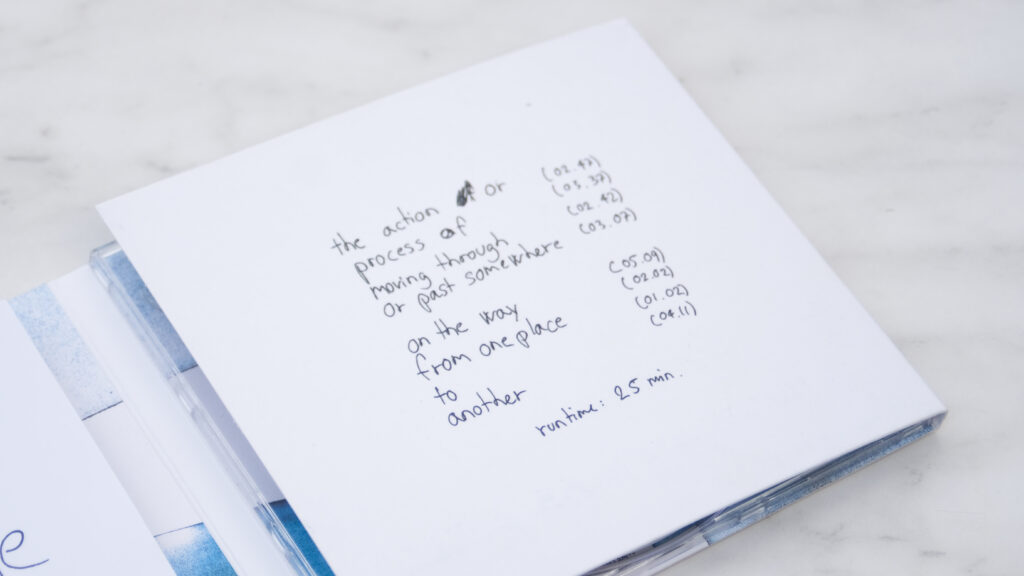 the action or (02.47)
process of (03.37)
moving through (02.42)
or past somewhere (03.07)
on the way (05.09)
from one place (02.02)
to (01.02)
another (04.11)
runtime: 25 min.
e